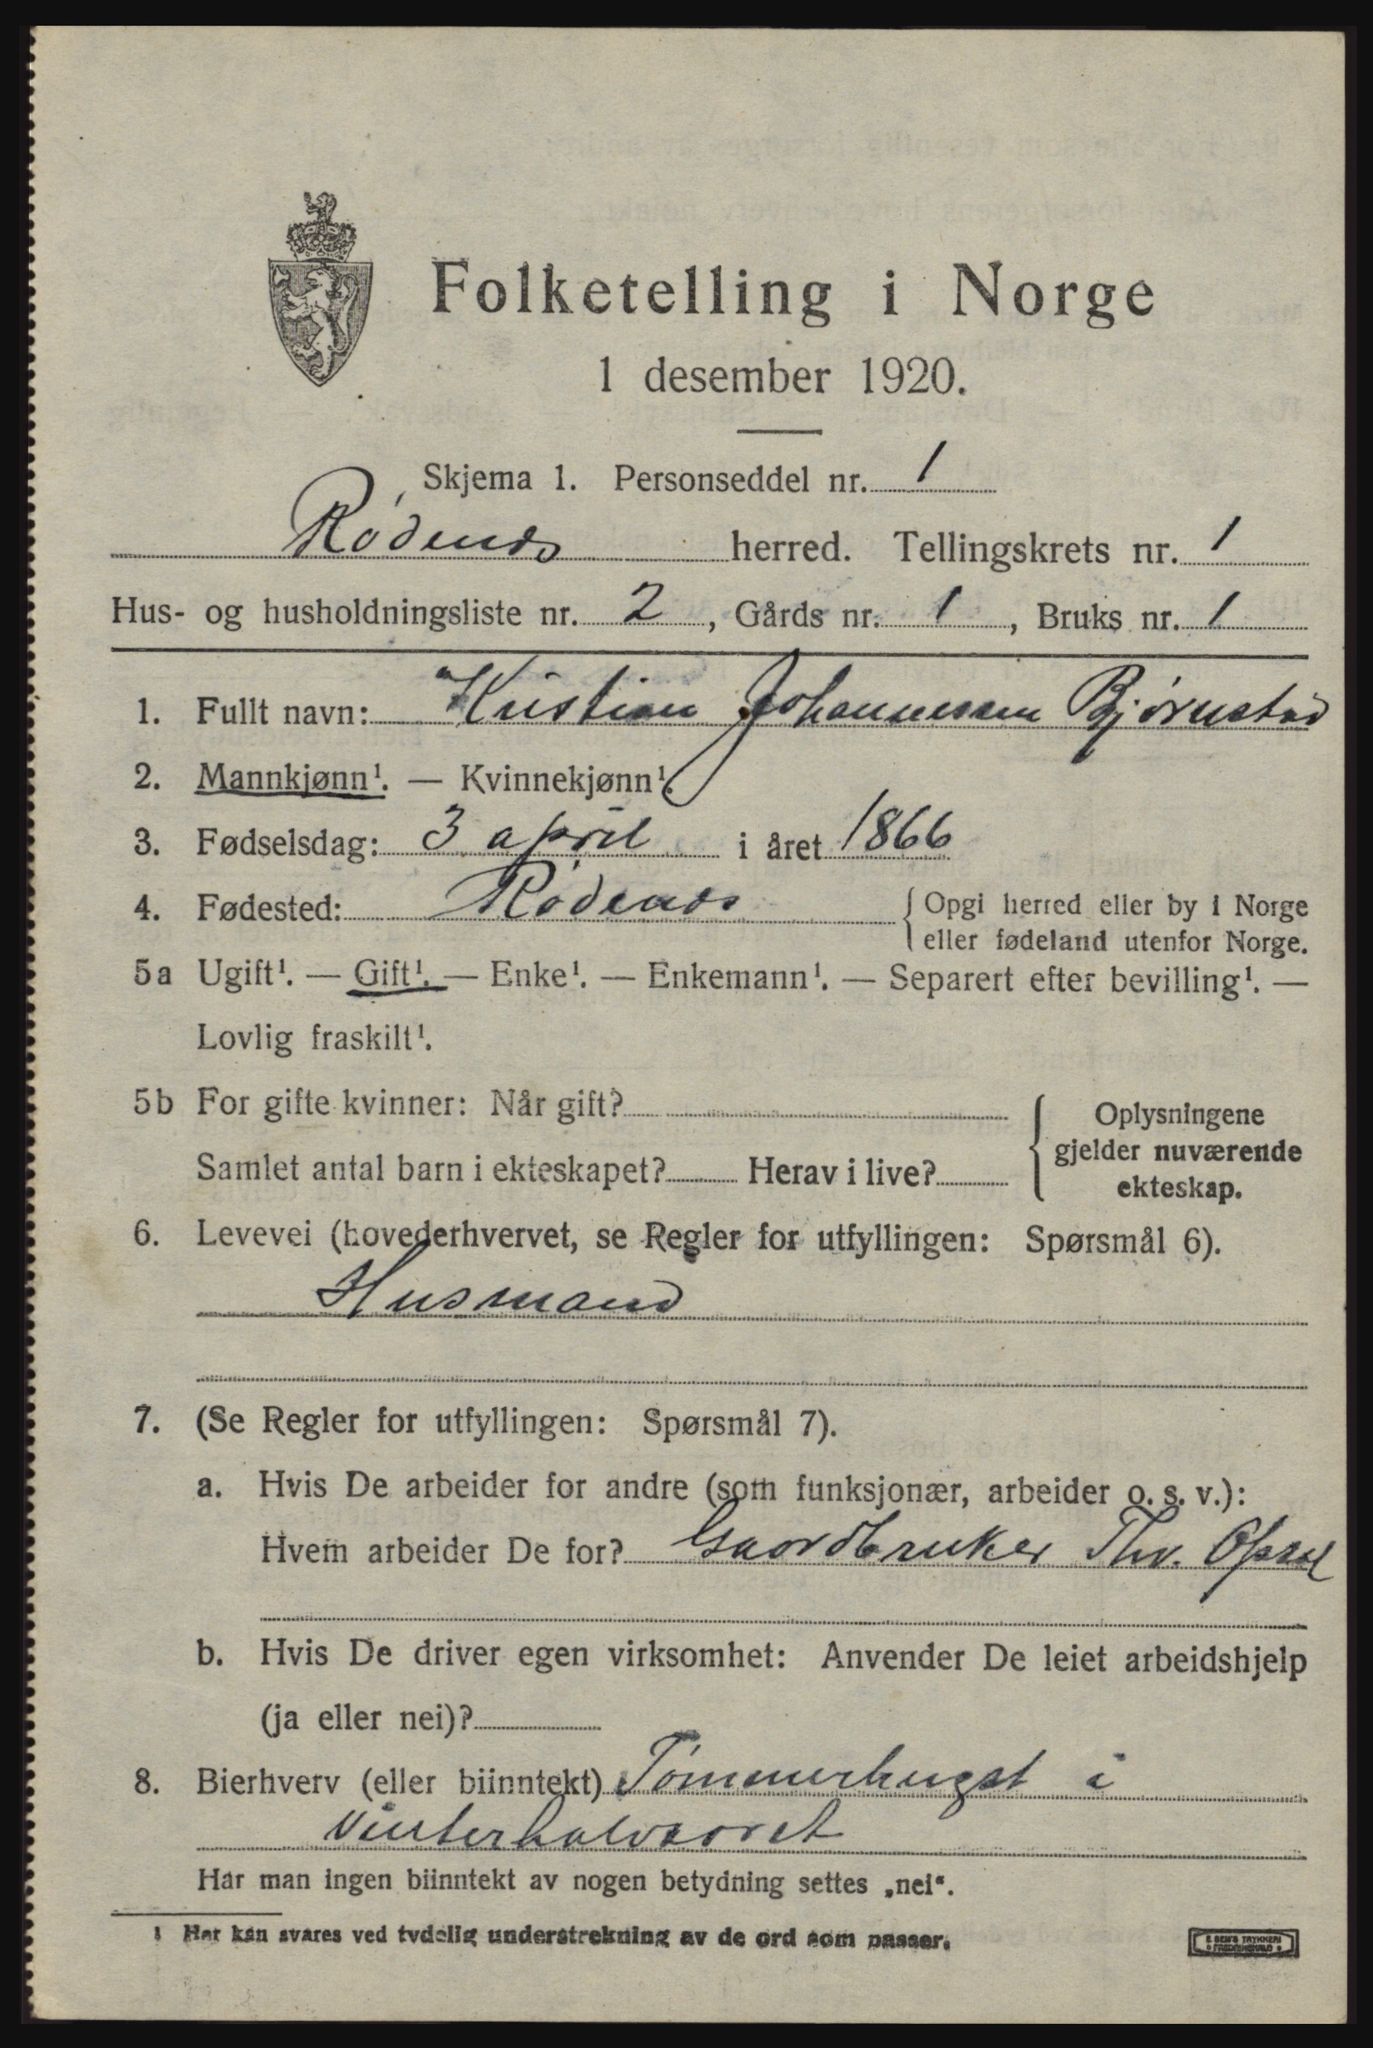 Folketelling i Norge
1 desember 1920.
Skjema 1. Personseddel nr. 1
Rødenes herred. Tellingskrets nr. 1
Hus- og husholdningsliste nr. 2, Gårds nr. 1, Bruks nr. 1
1. Fullt navn: Kristian Johannessen Bjørnstad
2. Mannkjønn¹. — Kvinnekjønn¹.
3. Fødselsdag: 3 april i året 1866
4. Fødested: Rødenes { Opgi herred eller by i Norge
eller fødeland utenfor Norge.
5a Ugift¹. — Gift¹. — Enke¹. — Enkemann¹. — Separert efter bevilling¹. —
Lovlig fraskilt¹.
5b For gifte kvinner: Når gift?
Samlet antal barn i ekteskapet? Herav i live?
{ Oplysningene
gjelder nuværende
ekteskap.
6. Levevei (hovederhvervet, se Regler for utfyllingen: Spørsmål 6).
Husmand
7. (Se Regler for utfyllingen: Spørsmål 7).
a. Hvis De arbeider for andre (som funksjonær, arbeider o. s. v.):
Hvem arbeider De for? Gaardbruker Thv.
b. Hvis De driver egen virksomhet: Anvender De leiet arbeidshjelp
(ja eller nei)?
8. Bierhverv (eller biinntekt) Tømmerhugst i
Vinterhalvaaret
Har man ingen biinntekt av nogen betydning settes „nei“.
1 Her kan svares ved tydelig understrekning av de ord som passer.